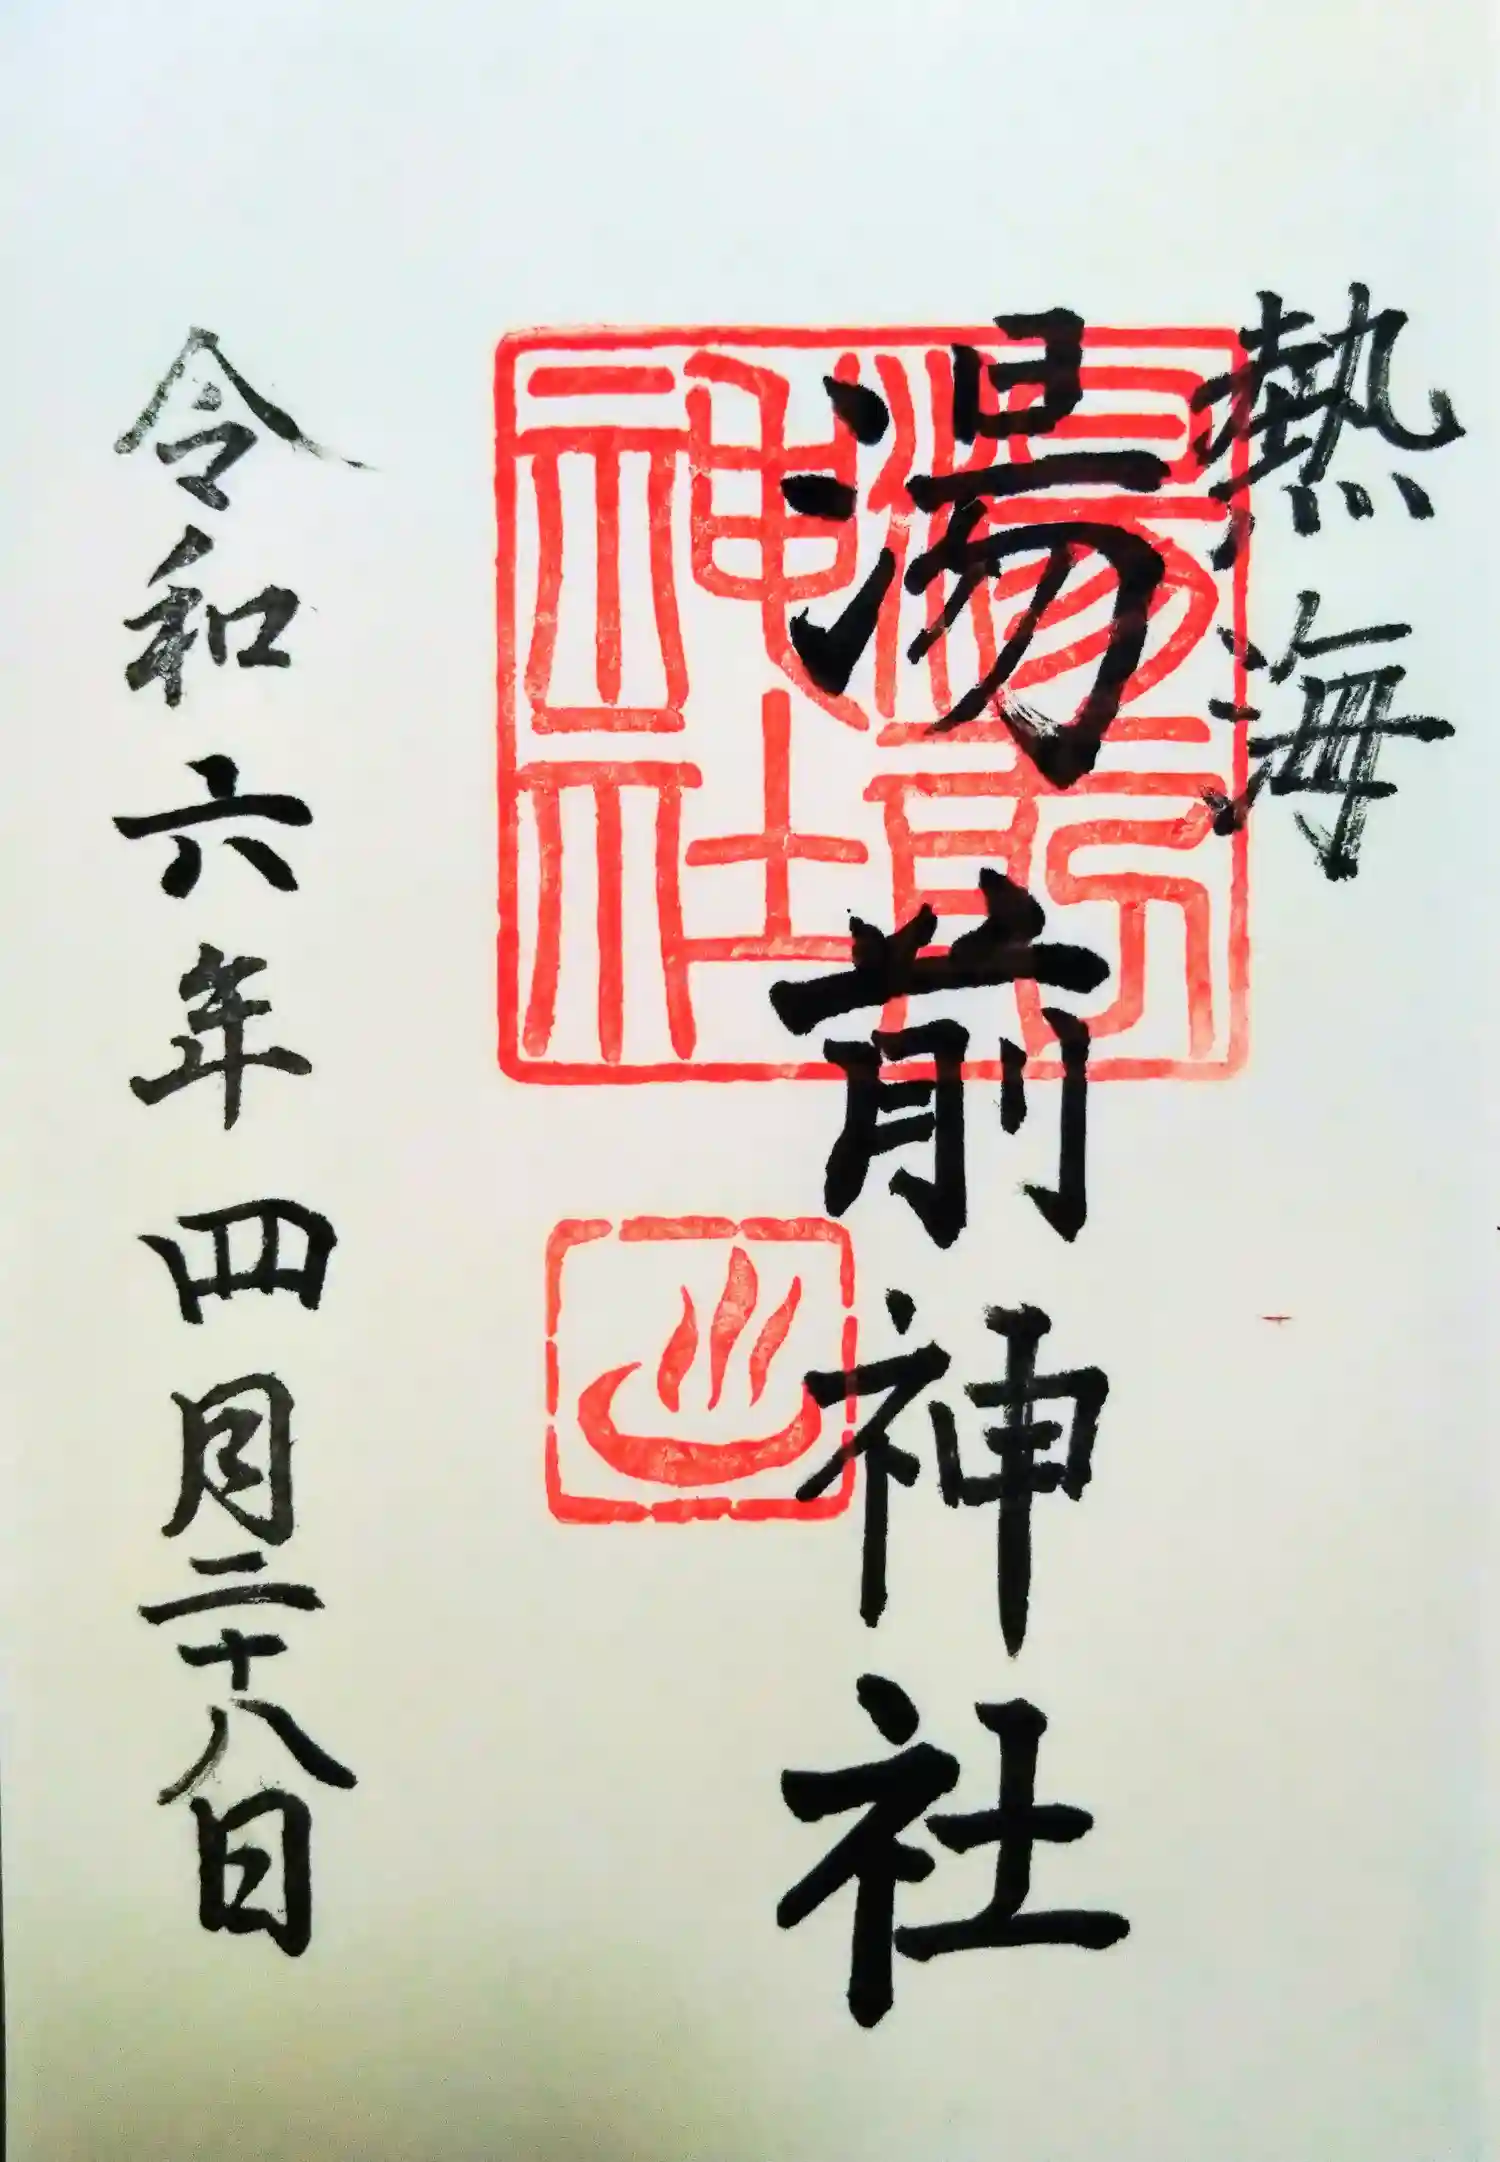 熱海
湯前神社
湯前
神社
令和六年四月二十八日